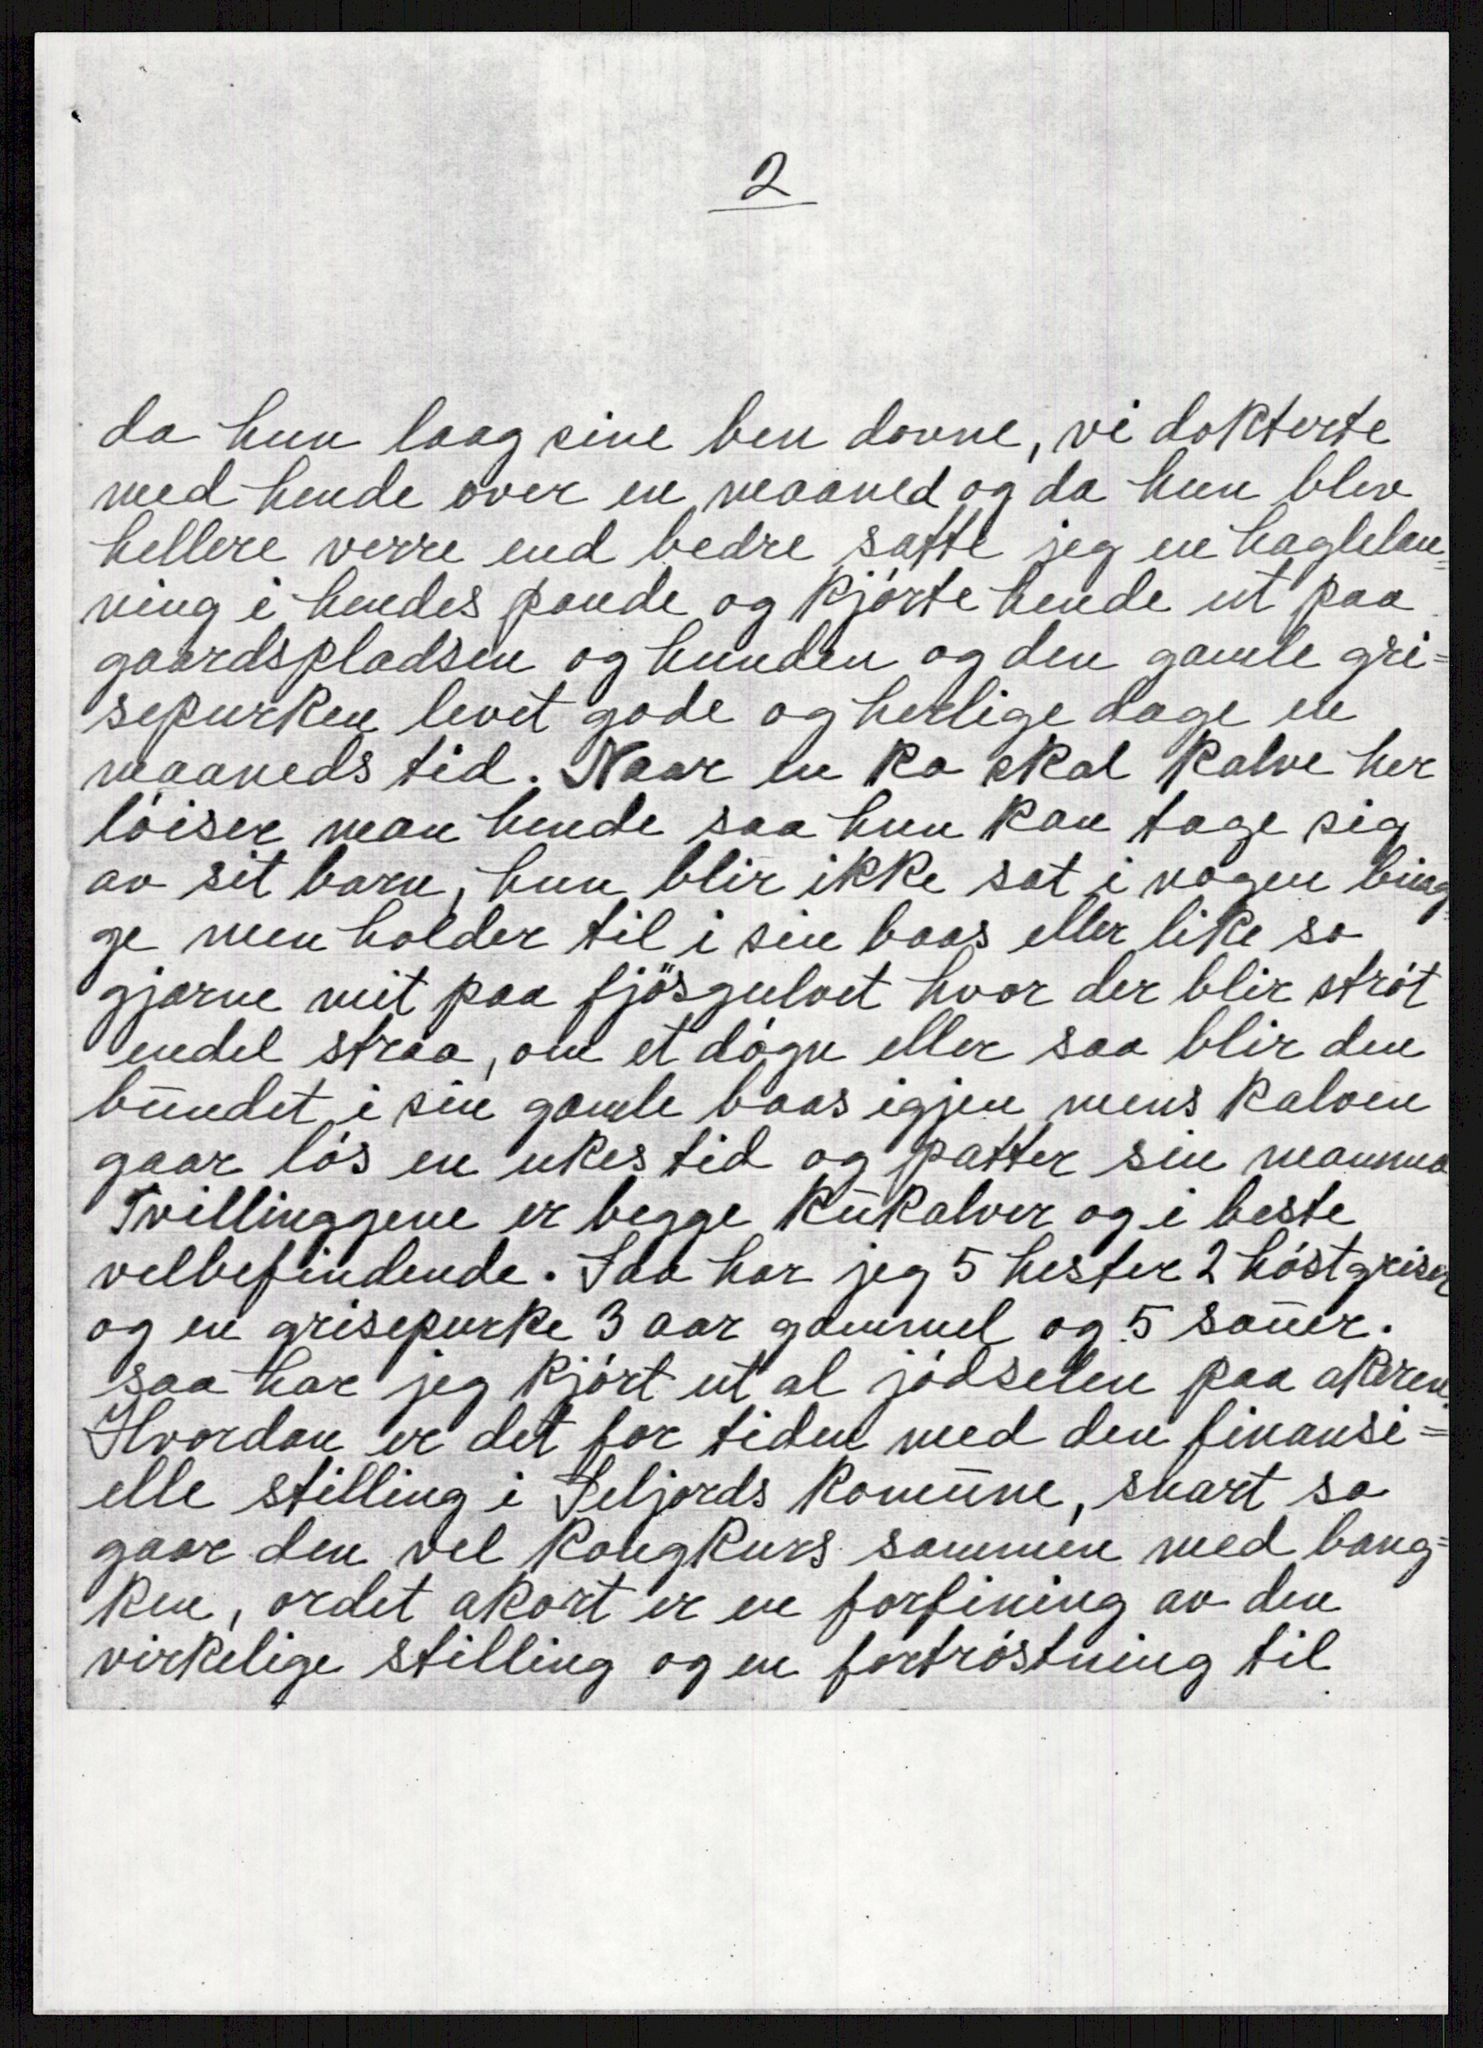 2
da hun laag sine ben dovne, vi dokterte
med hende over en maaned og da hun blev
hellere verre end bedre satte jeg en haglelau=
ning i hendes pande og kjörte hende ut paa
gaardspladsen og hunden og den gamle gri=
sepurken levet gode og herlige dage en
maaneds tid. Naar en ko skal kalve her
löiser man hende saa hun kan tage sig
av sit barn, hun blir ikke sat i nogen bing=
ge men holder til i sin baas eller like so
gjærne mit paa fjösgulvet hvor der blir ströt
endel straa, om et dögn eller saa blir den
bundet i sin gamle baas igjen mens kalven
gaar lös en ukes tid og patter sin mamma
Tvillinggene er begge kukalver og i beste
velbefindende. Saa har jeg 5 hester 2 höstgriser
og en grisepurke 3 aar gammel og 5 sauer.
saa har jeg kjört ut al jödselen paa akeren.
Hvordan er det for tiden med den finansi=
elle stilling i Seljords komune, snart so
gaar den vel kongkurs sammen med bang=
ken, ordet akort er en forfining av den
virkelige stilling og en fortröstning til